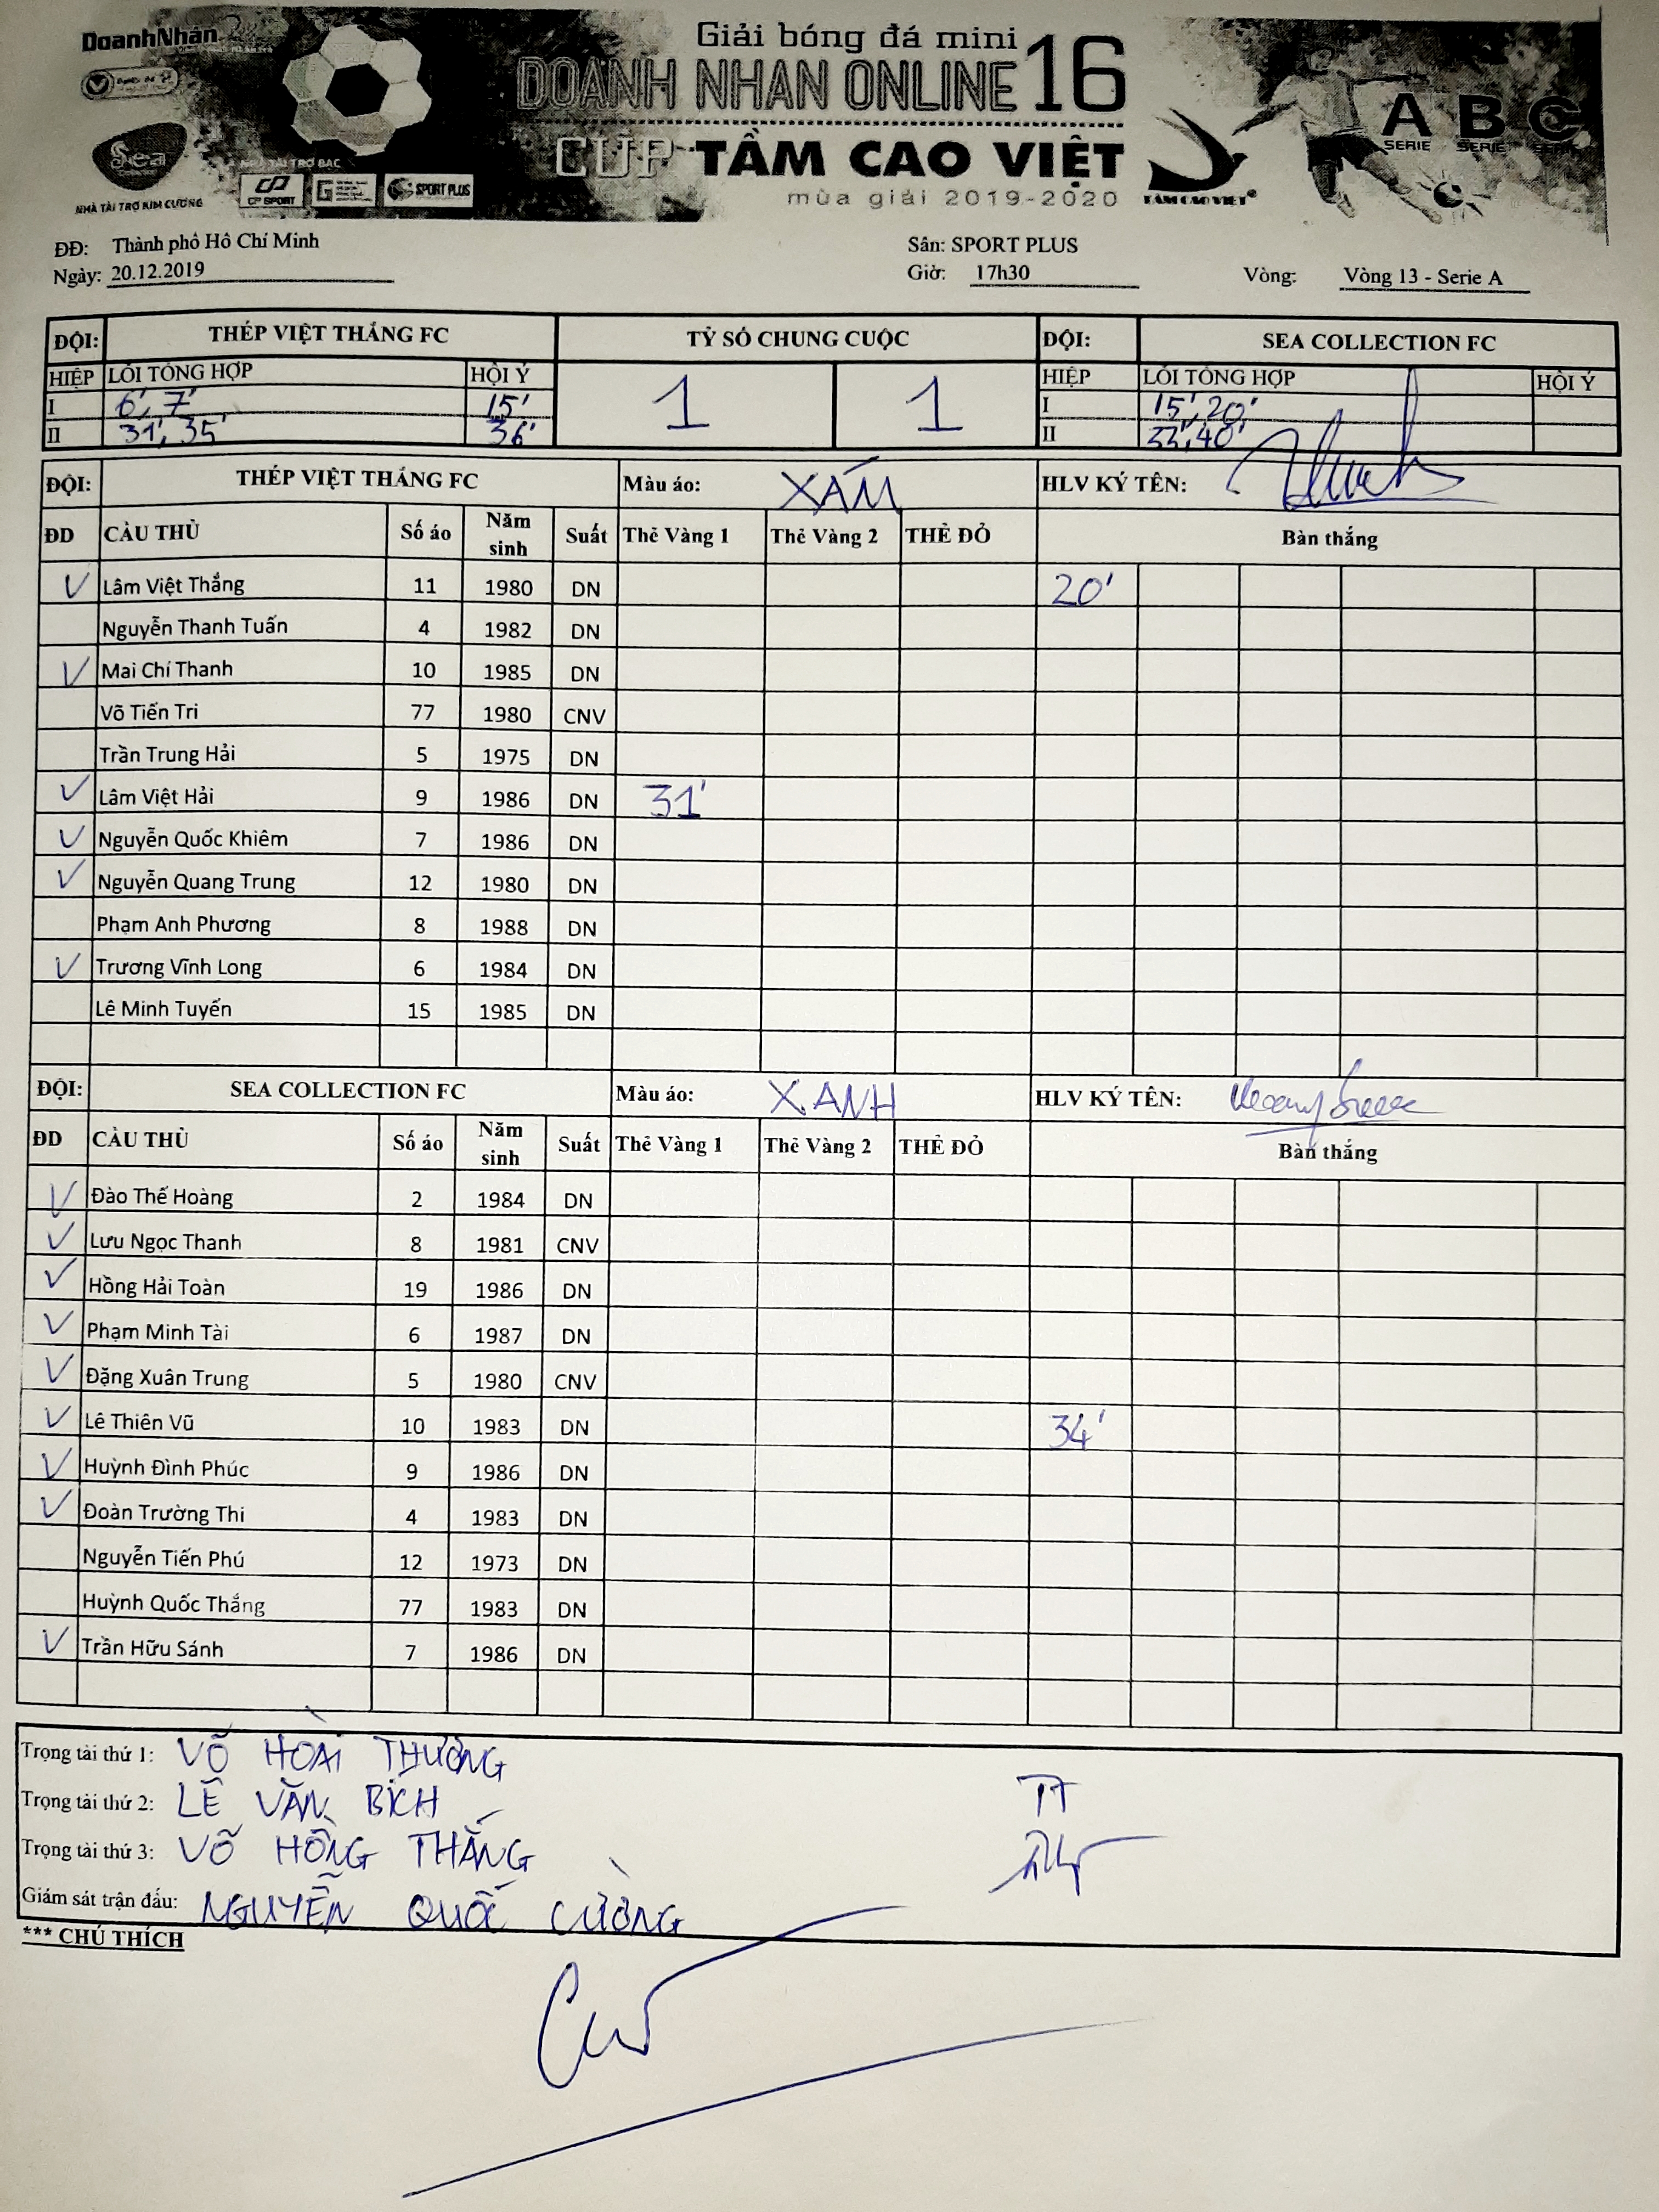 DoanhNhân
Giải bóng đá mini
DOANH NHAN ONLINE 16
CUP TẦM CAO VIỆT
mùa giải 2019-2020
Sea
NHÀ TÀI TRỢ KIM CƯƠNG
NHÀ TÀI TRỢ BẠC
CP SPORT
SPORT PLUS
TẦM CAO VIỆT
A SERIE B SERIE C SERIE
ĐĐ: Thành phố Hồ Chí Minh Sân: SPORT PLUS
Ngày: 20.12.2019 Giờ: 17h30 Vòng: Vòng 13 - Serie A
ĐỘI: THÉP VIỆT THẮNG FC TỶ SỐ CHUNG CUỘC ĐỘI: SEA COLLECTION FC
HIỆP LỖI TỔNG HỢP HỘI Ý 1 1 HIỆP LỖI TỔNG HỢP HỘI Ý
I 6', 7' 15' I 15', 20'
II 31', 35' 36' II 33', 40'
ĐỘI: THÉP VIỆT THẮNG FC Màu áo: XÁM HLV KÝ TÊN:
ĐD CẦU THỦ Số áo Năm sinh Suất Thẻ Vàng 1 Thẻ Vàng 2 THẺ ĐỎ Bàn thắng
V Lâm Việt Thắng 11 1980 DN 20'
Nguyễn Thanh Tuấn 4 1982 DN
V Mai Chí Thanh 10 1985 DN
Võ Tiến Tri 77 1980 CNV
Trần Trung Hải 5 1975 DN
V Lâm Việt Hải 9 1986 DN 31'
V Nguyễn Quốc Khiêm 7 1986 DN
V Nguyễn Quang Trung 12 1980 DN
Phạm Anh Phương 8 1988 DN
V Trương Vĩnh Long 6 1984 DN
Lê Minh Tuyến 15 1985 DN
ĐỘI: SEA COLLECTION FC Màu áo: XANH HLV KÝ TÊN:
ĐD CẦU THỦ Số áo Năm sinh Suất Thẻ Vàng 1 Thẻ Vàng 2 THẺ ĐỎ Bàn thắng
V Đào Thế Hoàng 2 1984 DN
V Lưu Ngọc Thanh 8 1981 CNV
V Hồng Hải Toàn 19 1986 DN
V Phạm Minh Tài 6 1987 DN
V Đặng Xuân Trung 5 1980 CNV
V Lê Thiên Vũ 10 1983 DN 34'
V Huỳnh Đình Phúc 9 1986 DN
V Đoàn Trường Thi 4 1983 DN
Nguyễn Tiến Phú 12 1973 DN
Huỳnh Quốc Thắng 77 1983 DN
V Trần Hữu Sánh 7 1986 DN
Trọng tài thứ 1: VÕ HOÀI THƯƠNG
Trọng tài thứ 2: LÊ VĂN BÍCH
TT
Trọng tài thứ 3: VÕ HỒNG THẮNG
Giám sát trận đấu: NGUYỄN QUỐC CƯỜNG
*** CHÚ THÍCH